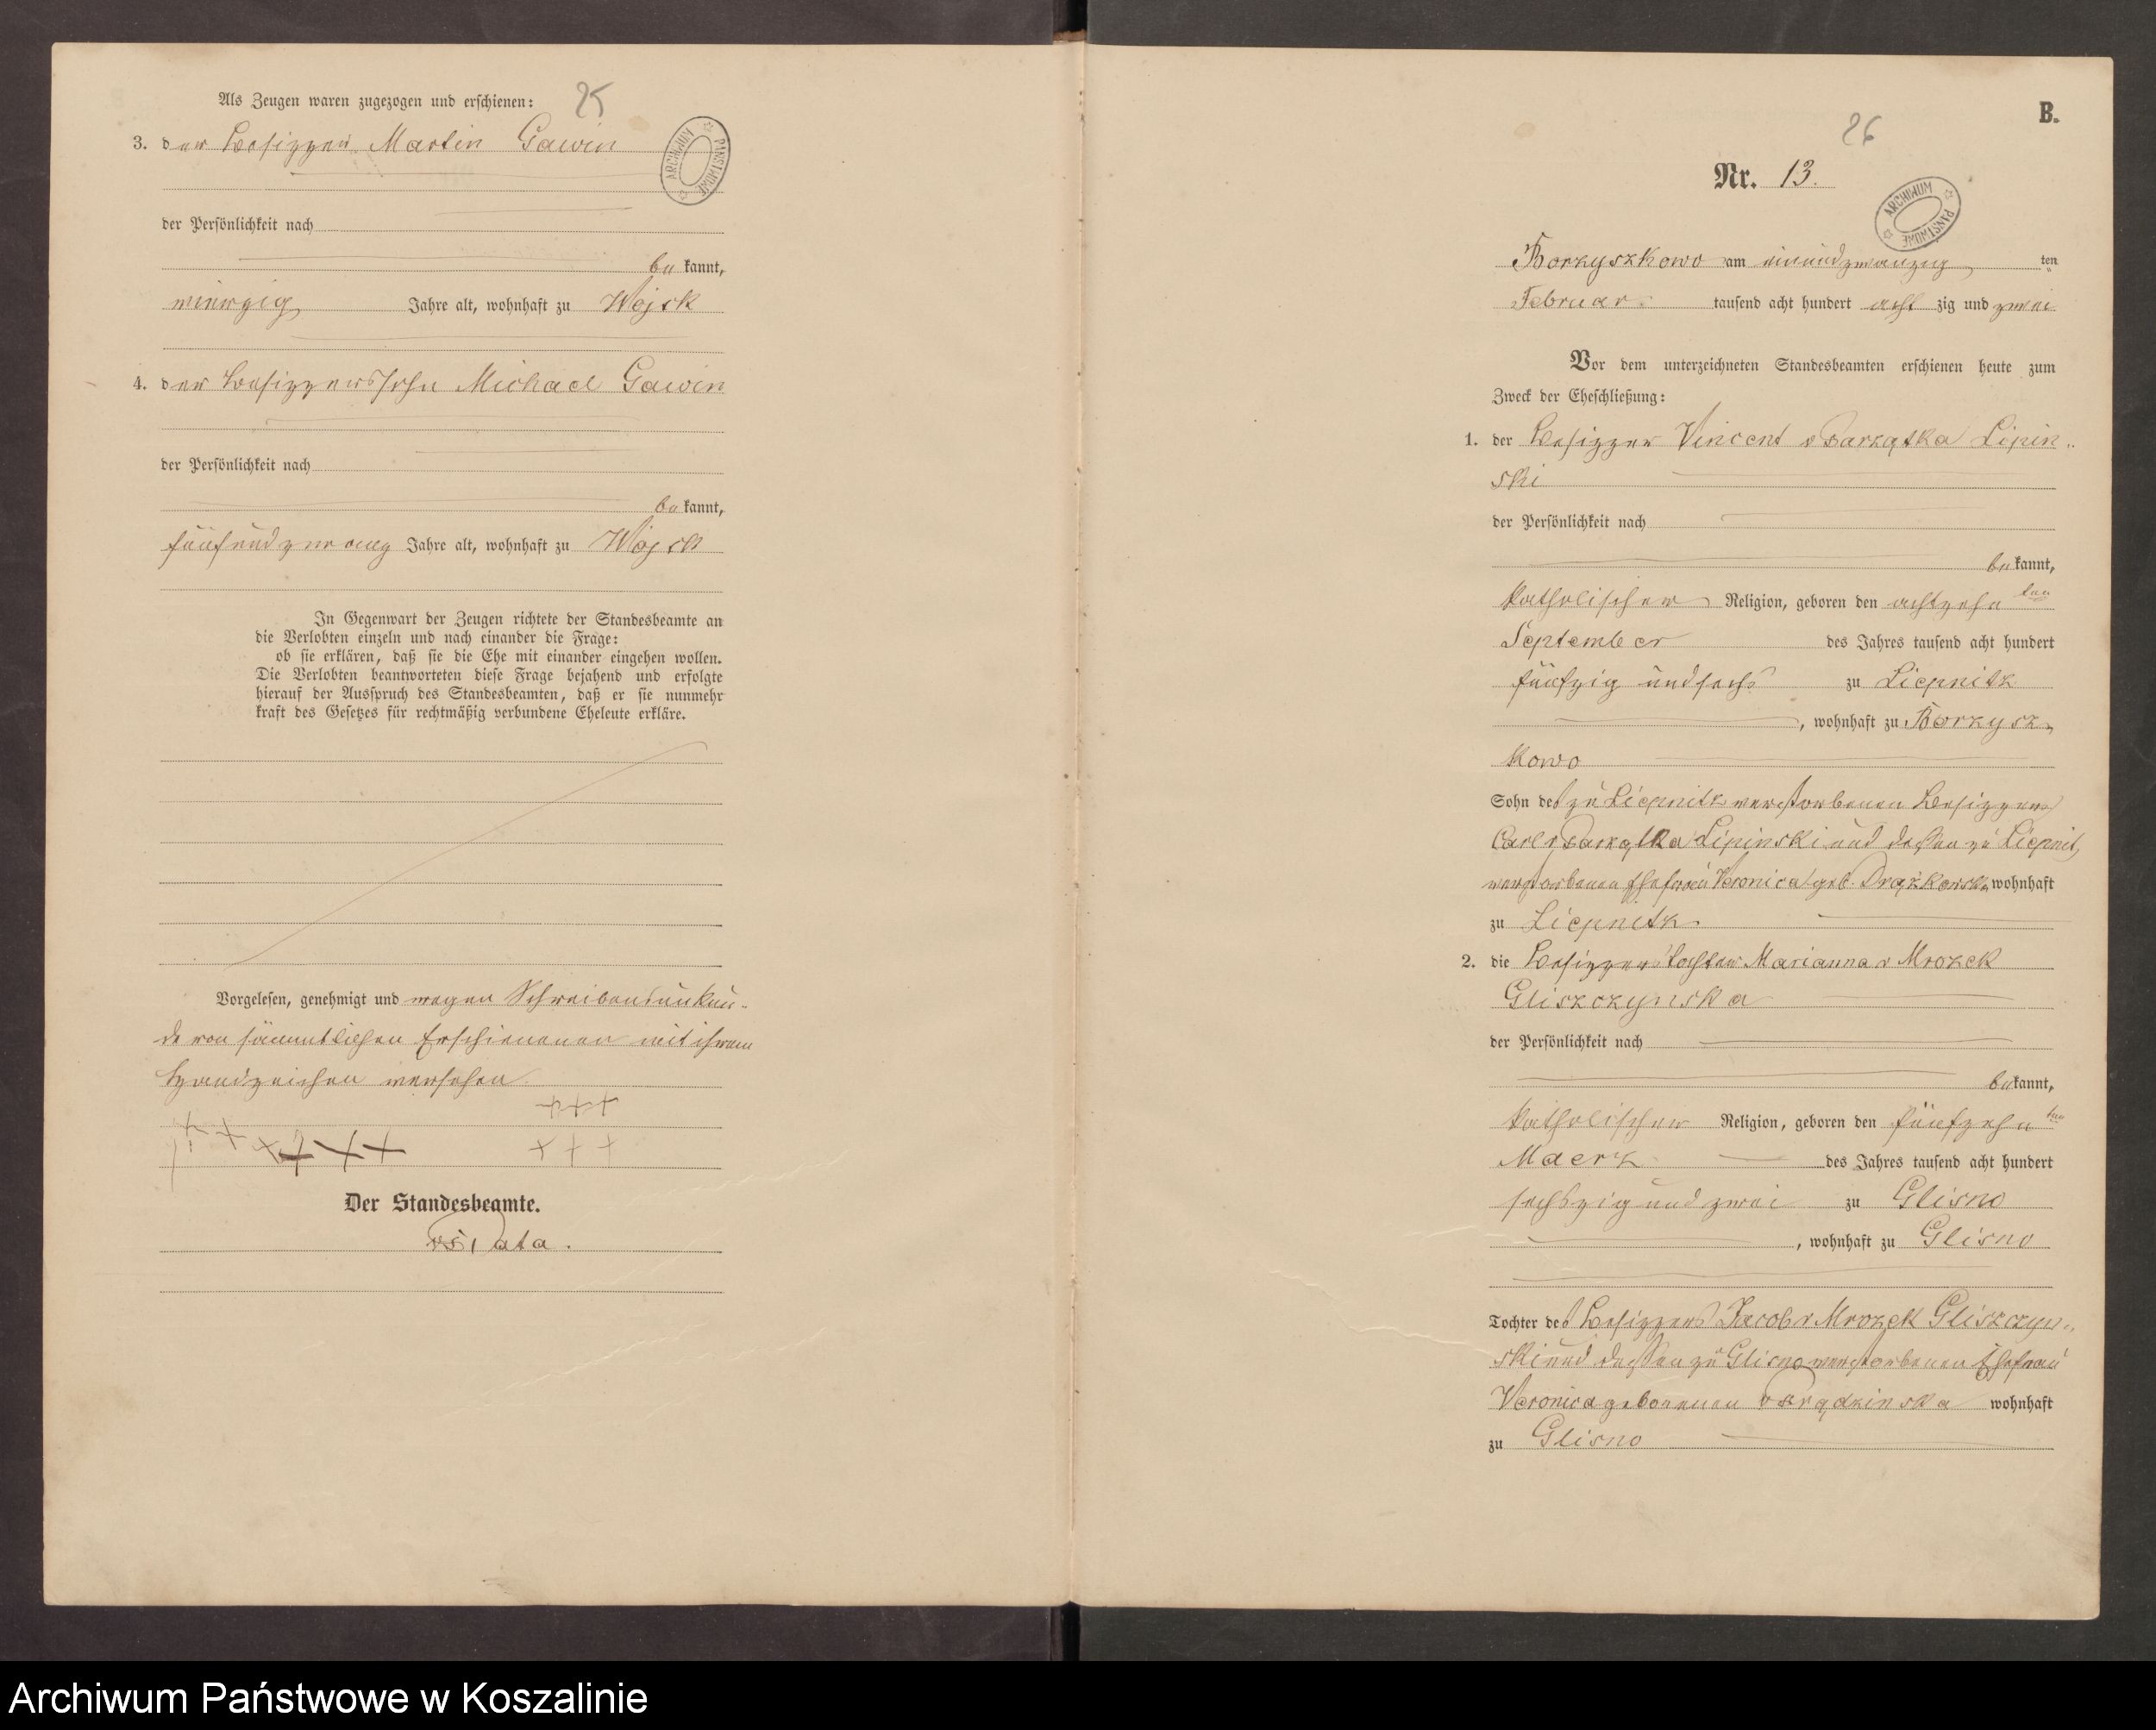 Als Zeugen waren zugezogen und erschienen:
25
3. der Besitzer Martin Gawin
ARCHIWUM PAŃSTWOWE
der Persönlichkeit nach
be kannt,
vierzig Jahre alt, wohnhaft zu Wojsk
4. der Besitzerssohn Michael Gawin
der Persönlichkeit nach
be kannt,
fünfundzwanzig Jahre alt, wohnhaft zu Wojsk
In Gegenwart der Zeugen richtete der Standesbeamte an
die Verlobten einzeln und nach einander die Frage:
ob sie erklären, daß sie die Ehe mit einander eingehen wollen.
Die Verlobten beantworteten diese Frage bejahend und erfolgte
hierauf der Ausspruch des Standesbeamten, daß er sie nunmehr
kraft des Gesetzes für rechtmäßig verbundene Eheleute erkläre.
Vorgelesen, genehmigt und wegen Schreibensunkun-
de von sämmtlichen Erschienenen mit ihrem
Handzeichen versehen.
+++
+++ +++ +++
Der Standesbeamte.
B.
26
Nr. 13.
ARCHIWUM PAŃSTWOWE
Borzyszkowo am einundzwanzig ten
Februar tausend acht hundert acht zig und zwei
Vor dem unterzeichneten Standesbeamten erschienen heute zum
Zweck der Eheschließung:
1. der Besitzer Vincent Lipin-
ski
der Persönlichkeit nach
be kannt,
katholischer Religion, geboren den achtzehn ten
September des Jahres tausend acht hundert
fünfzig und sechs zu Liepnitz
, wohnhaft zu Borzysz-
kowo
Sohn des zu Liepnitz verstorbenen Besitzers
Carl Lipinski und dessen zu Liepnitz
verstorbenen Ehefrau Veronica geb. wohnhaft
zu Liepnitz
2. die Besitzerstochter Marianna v Mrozek
Gliszczynska
der Persönlichkeit nach
be kannt,
katholischer Religion, geboren den fünfzehn ten
Maerz des Jahres tausend acht hundert
sechszig und zwei zu Glisno
, wohnhaft zu Glisno
Tochter des Besitzers Jacob v Mrozek Gliszczyn-
ski und dessen zu Glisno verstorbenen Ehefrau
Veronica geborenen wohnhaft
zu Glisno
Archiwum Państwowe w Koszalinie